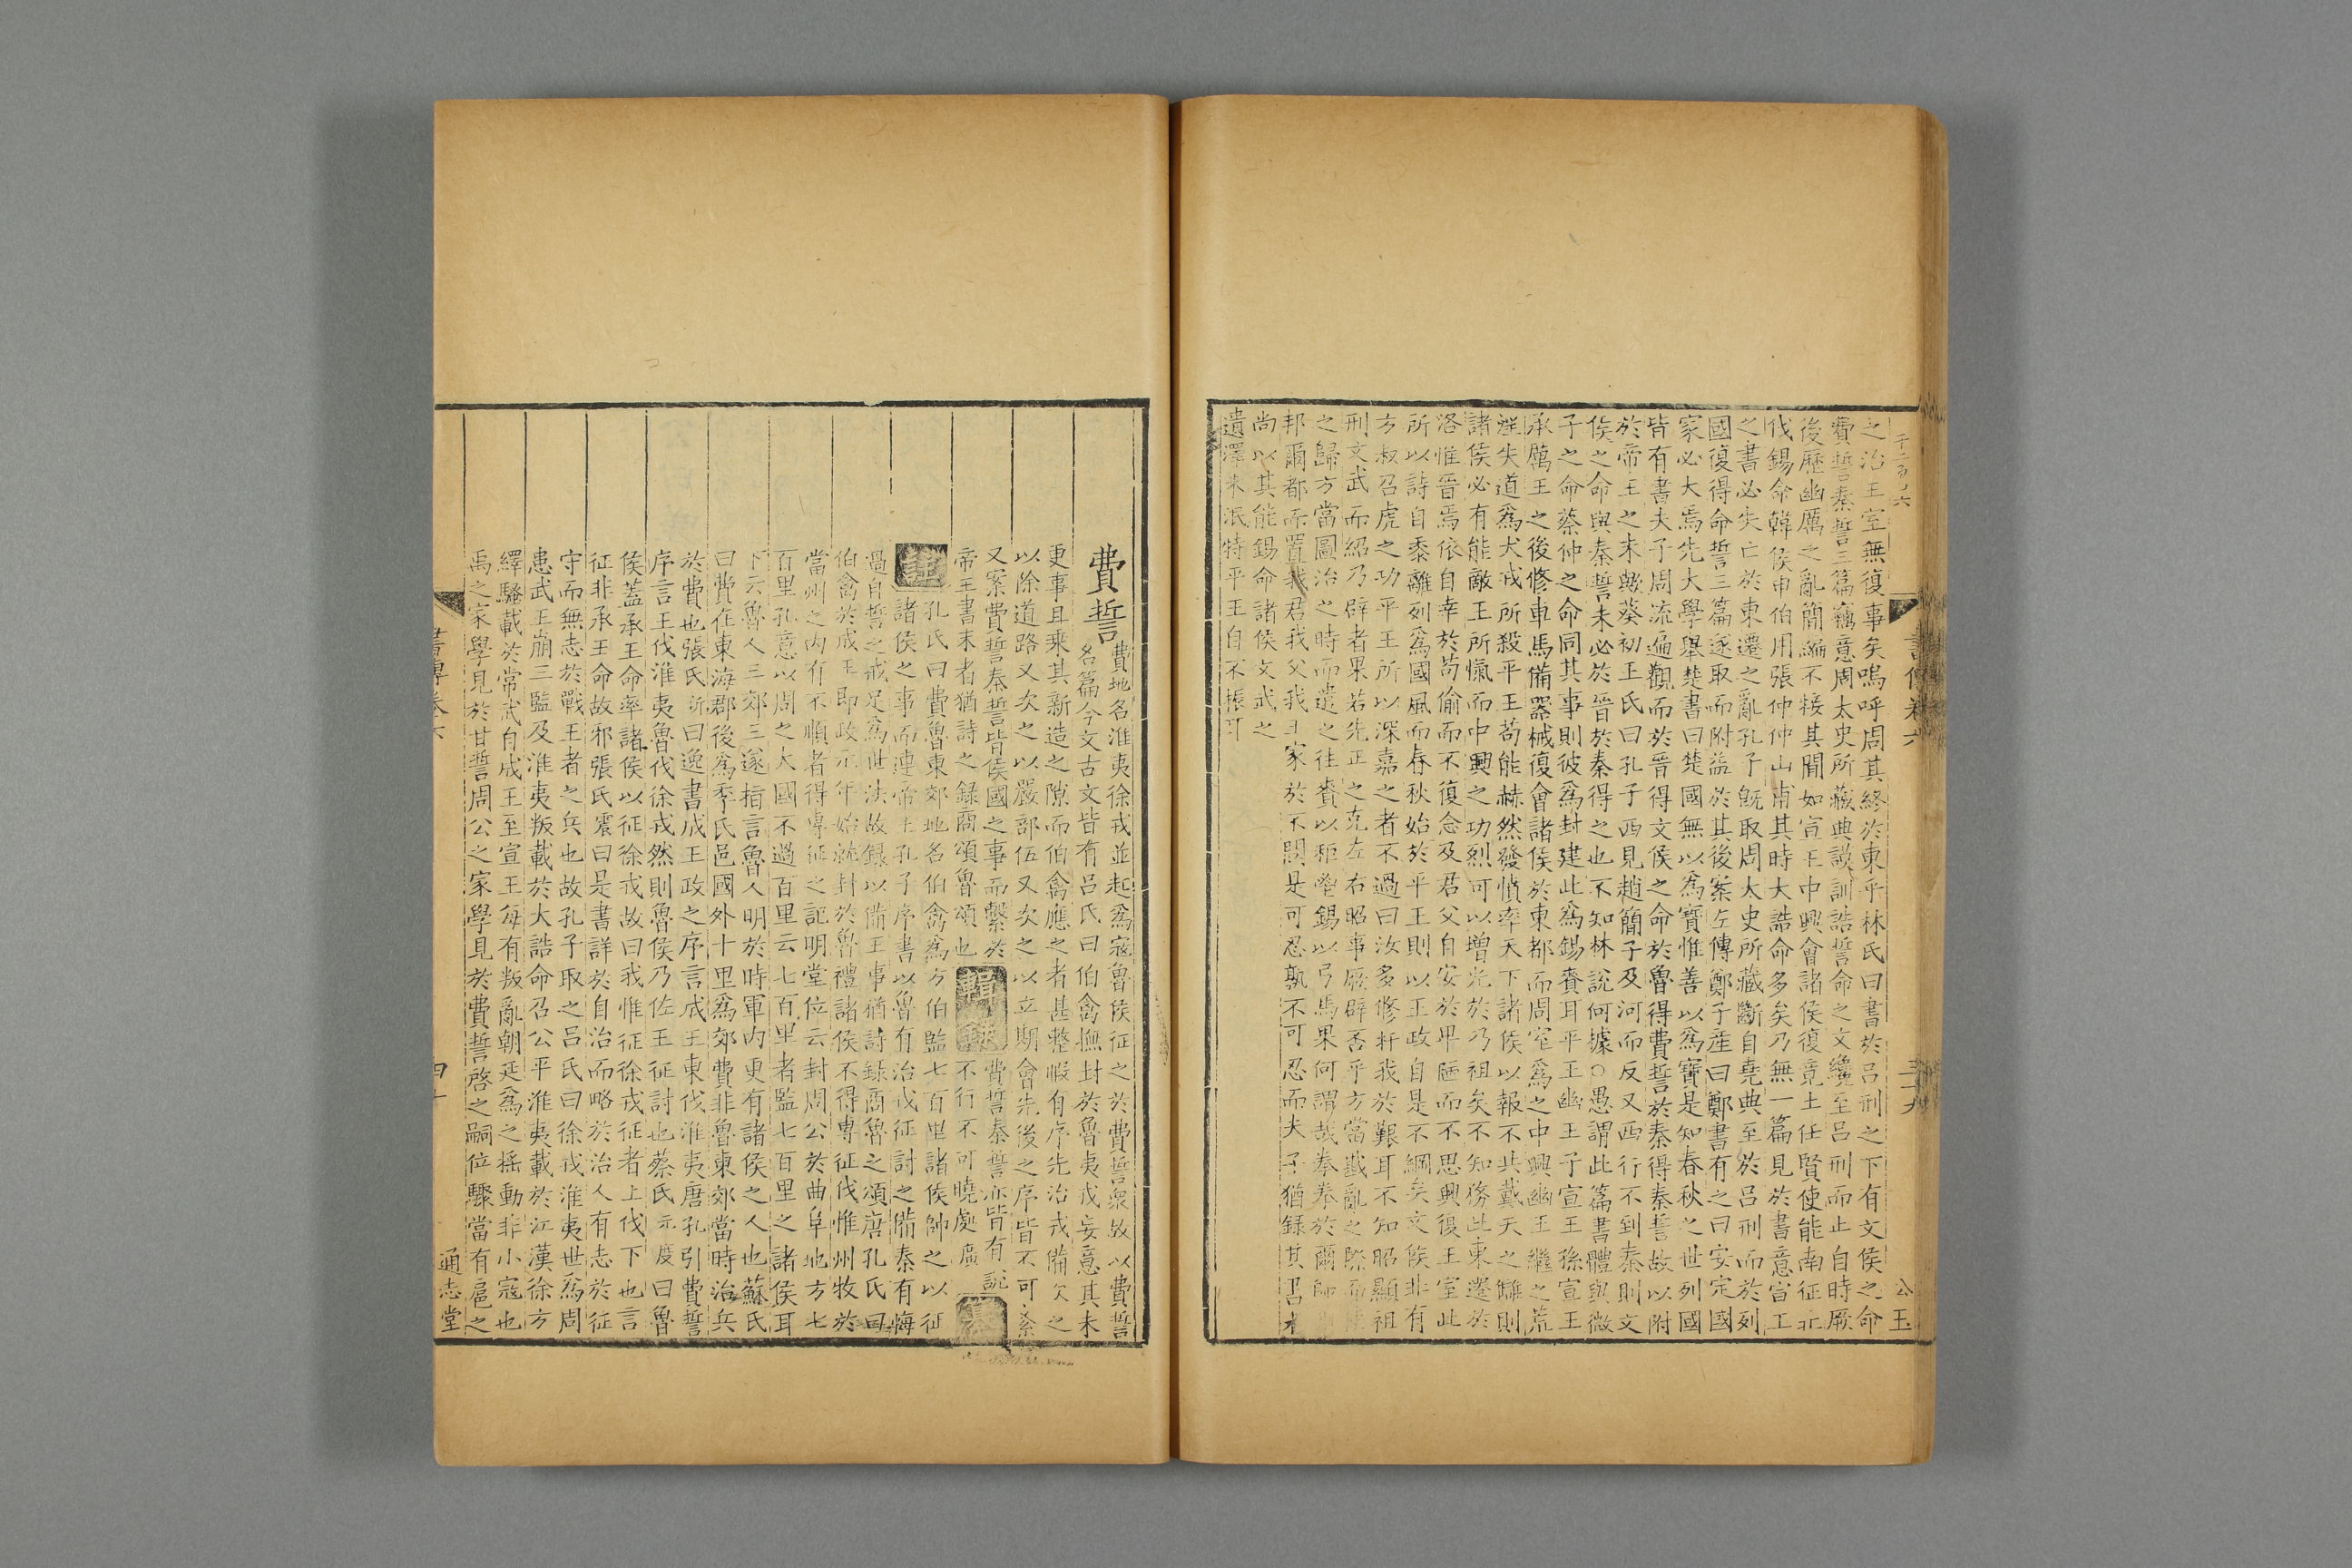 之治王室無復事矣嗚呼周其終於東乎林氏曰書於呂刑之下有文侯之命
費誓秦誓三篇竊意周太史所藏典謨訓誥誓命之文纔至呂刑而止自時厥
後歷幽厲之亂簡編不接其間如宣王中興會諸侯復竟土任賢使能南征北
伐錫命韓侯申伯用張仲仲山甫其時大誥命多矣乃無一篇見於書意宣王
之書必失亡於東遷之亂孔子旣取周太史所藏斷自堯典至於呂刑而於列
國復得命誓三篇遂取而附益於其後案左傳鄭子産曰鄭書有之曰安定國
家必大焉先大學舉楚書曰楚國無以爲寶惟善以爲寶是知春秋之世列國
皆有書夫子周流遍觀而於晉得文侯之命於魯得費誓於秦得秦誓故以附
於帝王之末歟葵初王氏曰孔子西見趙簡子及河而反又西行不到秦則文
侯之命與秦誓未必於晉於秦得之也不知林說何據○愚謂此篇書體與微
子之命蔡仲之命同其事則彼爲封建此爲錫賚耳平王幽王子宣王孫宣王
承厲王之後修車馬備器械復會諸侯於東都而周室爲之中興幽王繼之荒
淫失道爲犬戎所殺平王苟能赫然發憤率天下諸侯以報不共戴天之讎則
諸侯必有能敵王所愾而中興之功烈可以增光於乃祖矣不知務此東遷於
洛惟晉焉依自幸於苟偷而不復念及君父自安於卑陋而不思興復王室此
所以詩自黍離列爲國風而春秋始於平王則以王政自是不綱矣文侯非有
方叔召虎之功平王所以深嘉之者不過曰汝多修扞我於艱耳不知昭顯祖
刑文武而紹乃辟者果若先正之克左右昭事厥辟否乎方當戡亂之際而
之歸方當圖治之時而遣之往賚以秬鬯錫以弓馬果何謂哉拳拳於爾師
邦爾都而置我君我父我王家於不問是可忍孰不可忍而夫子猶録其書者
尚以其能錫命諸侯文武之
遺澤未泯特平王自不振耳
書傳卷六
三十九
公玉
費誓
費地名淮夷徐戎並起爲寇魯侯征之於費誓衆故以費誓
名篇今文古文皆有呂氏曰伯禽撫封於魯夷戎妄意其未
更事且乘其新造之隙而伯禽應之者甚整暇有序先治戎備次之
以除道路又次之以嚴部伍又次之以立期會先後之序皆不可紊
又案費誓秦誓皆侯國之事而繫於
帝王書末者猶詩之録商頌魯頌也
輯錄
費誓秦誓亦皆有說
不行不可曉處廣
纂
註
孔氏曰費魯東郊地名伯禽爲方伯監七百里諸侯帥之以征
諸侯之事而連帝王孔子序書以魯有治戎征討之備秦有悔
過自誓之戒足爲世法故録以備王事猶詩録商魯之頌唐孔氏曰
伯禽於成王即政元年始就封於魯禮諸侯不得專征伐惟州牧於
當州之内有不順者得專征之記明堂位云封周公於曲阜地方七
百里孔意以周之大國不過百里云七百里者監七百里之諸侯耳
下云魯人三郊三遂指言魯人明於時軍内更有諸侯之人也蘇氏
曰費在東海郡後爲季氏邑國外十里爲郊費非魯東郊當時治兵
於費也張氏沂曰逸書成王政之序言成王東伐淮夷唐孔引費誓
序言王伐淮夷魯伐徐戎然則魯侯乃佐王征討也蔡氏元度曰魯
侯蓋承王命率諸侯以征徐戎故曰我惟征徐戎征者上伐下也言
征非承王命故邪張氏震曰是書詳於自治而略於治人有志於征
守而無志於戰王者之兵也故孔子取之呂氏曰徐戎淮夷世爲周
患武王崩三監及淮夷叛載於大誥命召公平淮夷載於江漢徐方
繹騷載於常武自成王至宣王每有叛亂朝廷爲之揺動非小寇也
禹之家學見於甘誓周公之家學見於費誓啓之嗣位驟當有扈之
書傳卷六
四十
通志堂